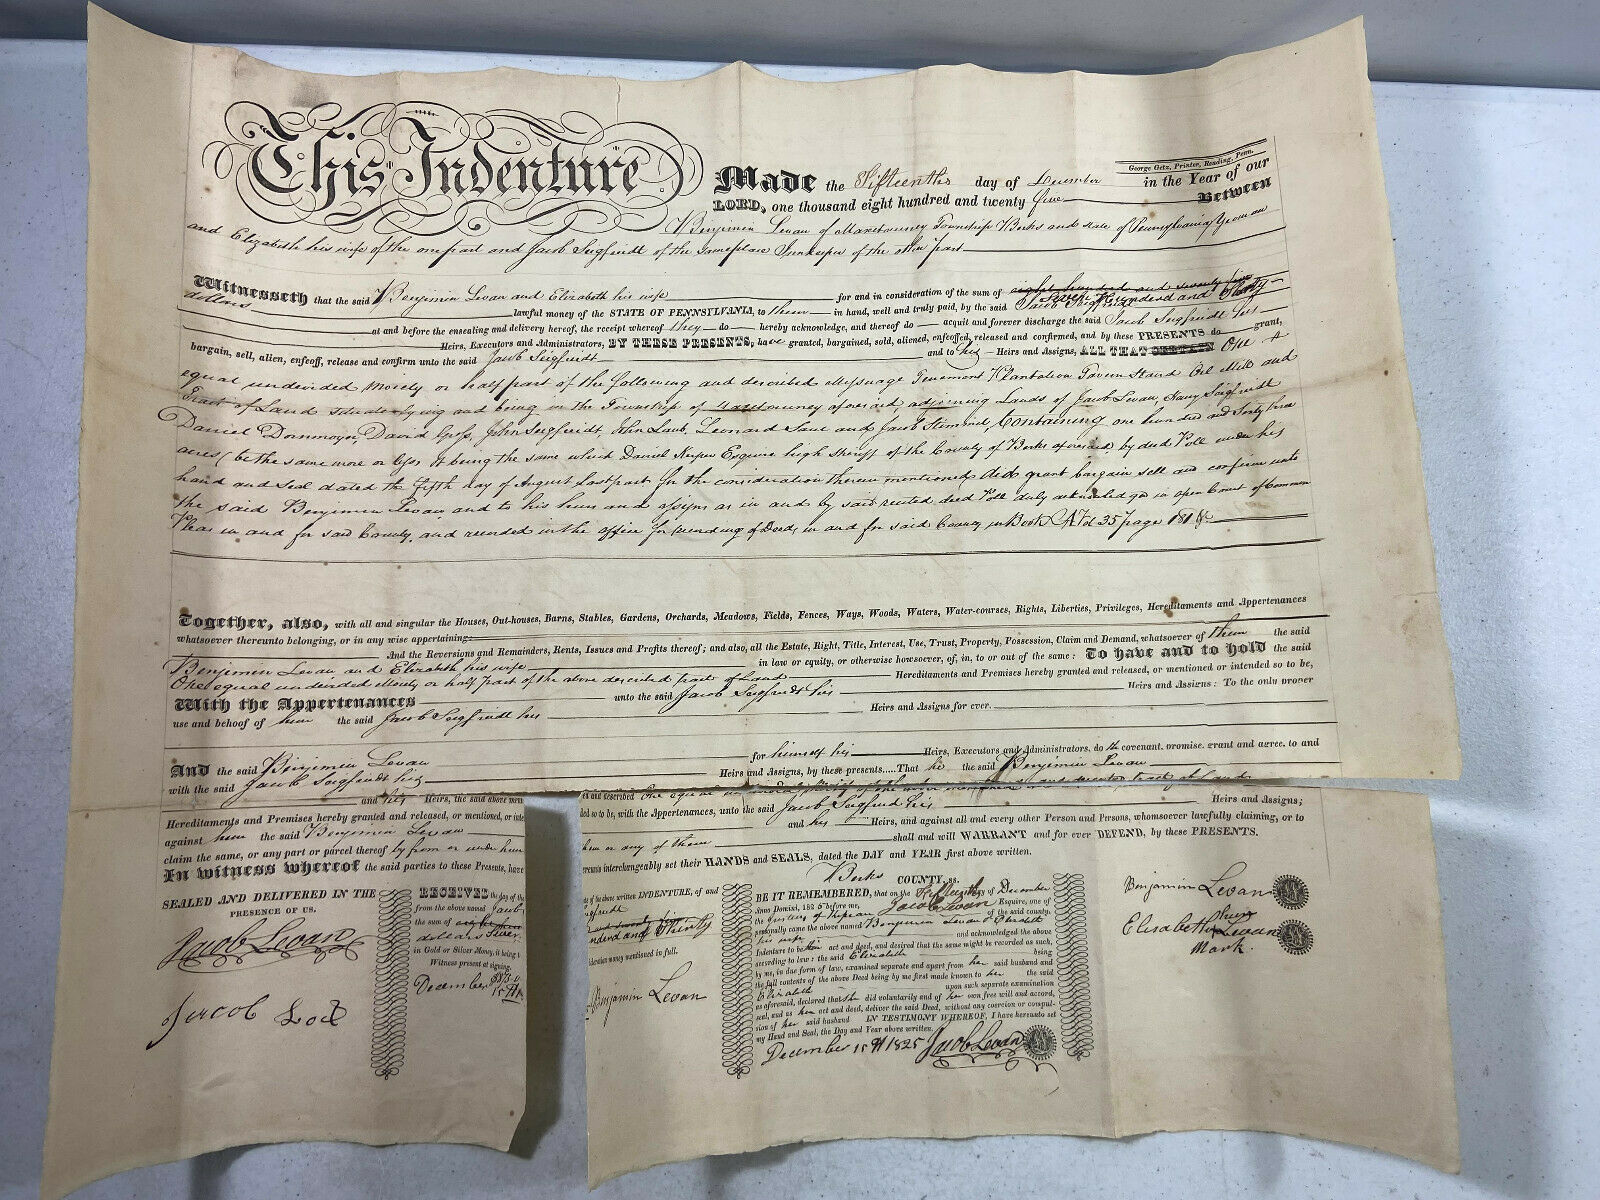 This Indenture
George Getz, Printer, Reading, Penn.
Made the Fifteenth day of December in the Year of our
LORD, one thousand eight hundred and twenty five Between
Benjamin Levan of Maxetawney Township Berks and state of Pennsylvania Yeoman
and Elizabeth his wife of the one part and Jacob Seigfriedt of the same place Innkeeper of the other part
Witnesseth that the said Benjamin Levan and Elizabeth his wife for and in consideration of the sum of eight hundred and seventy five
Seven Hundred and Thirty
dollars lawful money of the STATE OF PENNSILVANIA, to them in hand, well and truly paid, by the said Jacob Seigfriedt
at and before the ensealing and delivery hereof, the receipt whereof they do hereby acknowledge, and thereof do acquit and forever discharge the said Jacob Seigfriedt his
Heirs, Executors and Administrators, BY THESE PRESENTS, have granted, bargained, sold, aliened, enfeoffed, released and confirmed, and by these PRESENTS do grant,
bargain, sell, alien, enfeoff, release and confirm unto the said Jacob Seigfriedt and to his Heirs and Assigns, ALL THAT CERTAIN One
equal undivided Moiety or half part of the following and described Messuage Tenement Plantation Tavern Stand Oil Mill and
Tract of Land situate lying and being in the Township of Maxetawney aforesaid, adjoining Lands of Jacob Levan, Seigfriedt
Daniel Dornmoyer, David Gross, John Seigfriedt, John Laub, Leonard and Jacob Containing one hundred and forty three
acres (be the same more or less It being the same which Daniel Kerper Esquire high sheriff of the County of Berks aforesaid by deed Poll under his
hand and seal dated the fifth day of August last past for the consideration therein mentioned did grant bargain sell and confirm unto
the said Benjamin Levan, and to his heirs and assigns as in and by said recited deed Poll duly acknowledged in open Court of Common
Pleas in and for said County, and recorded in the office for recording of Deeds in and for said County, in Book A Vol 35 page 181 &c
Together, also, with all and singular the Houses, Out-houses, Barns, Stables, Gardens, Orchards, Meadows, Fields, Fences, Ways, Woods, Waters, Water-courses, Rights, Liberties, Privileges, Hereditaments and Appertenances
whatsoever thereunto belonging, or in any wise appertaining:
And the Reversions and Remainders, Rents, Issues and Profits thereof; and also, all the Estate, Right, Title, Interest, Use, Trust, Property, Possession, Claim and Demand, whatsoever of them the said
Benjamin Levan and Elizabeth his wife in law or equity, or otherwise howsoever, of, in, to or out of the same: To have and to hold the said
One equal undivided Moiety or half part of the above described tract of Land Hereditaments and Premises hereby granted and released, or mentioned or intended so to be,
With the Appertenances unto the said Jacob Seigfriedt his Heirs and Assigns: To the only proper
use and behoof of him the said Jacob Seigfriedt his Heirs and Assigns for ever.
And the said Benjamin Levan for himself his Heirs, Executors and Administrators, do th covenant, promise, grant and agree, to and
with the said Jacob Seigfriedt his Heirs and Assigns, by these presents.....That he the said Benjamin Levan
and his Heirs, the said above described One equal undivided Moiety of the above tract of Land
Hereditaments and Premises hereby granted and released, or mentioned, or so to be, with the Appertenances, unto the said Jacob Seigfried his Heirs and Assigns;
against him the said Benjamin Levan and his Heirs, and against all and every other Person and Persons, whomsoever lawfully claiming, or to
claim the same, or any part or parcel thereof by from or under him or any of them shall and will WARRANT and for ever DEFEND, by these PRESENTS.
In witness whereof the said parties to these Presents, have interchangeably set their HANDS and SEALS, dated the DAY and YEAR first above written.
SEALED AND DELIVERED IN THE
PRESENCE OF US,
Jacob Levan
RECEIVED the day of the
from the above named Jacob
the sum of
dollars Seven
in Gold or Silver Money, it being t
Witness present at signing,
December
of the above written INDENTURE, of and
nderd and Thirty
ideration money mentioned in full.
Benjamin Levan
Berks COUNTY, ss.
BE IT REMEMBERED, that on the Fifteenth day of December
Anno Domini, 182 5 before me, Jacob Levan Esquire, one of
the Justices of the peace of the said county,
personally came the above named Benjamin Levan & Elizabeth
his wife and acknowledged the above
Indenture to be their act and deed, and desired that the same might be recorded as such,
according to law: the said Elizabeth being
by me, in due form of law, examined separate and apart from her said husband and
the full contents of the above Deed being by me first made known to her the said
Elizabeth upon such separate examination
as aforesaid, declared that she did voluntarily and of her own free will and accord,
seal, and as her act and deed, deliver the said Deed, without any coercion or compul-
sion of her said husband IN TESTIMONY WHEREOF, I have hereunto set
my Hand and Seal, the Day and Year above written.
December 15th 1825 Jacob Levan
Benjamin Levan
Elisabeth her Levan
Mark.